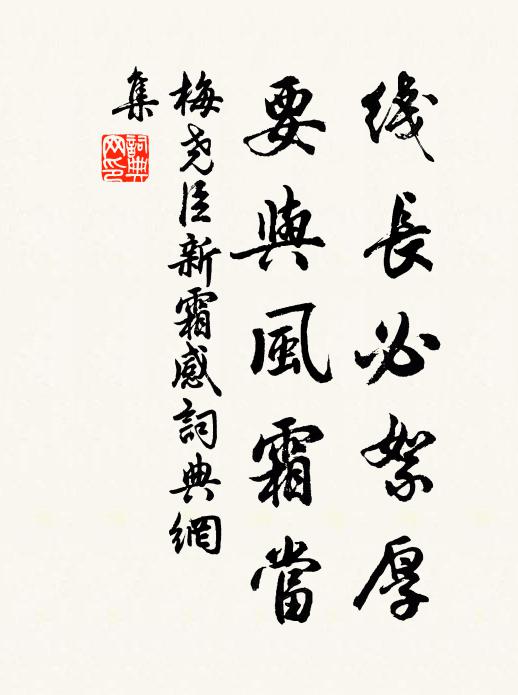 綫長必絮厚
要與風霜當
梅堯臣新霜感詞典網
集
詞典網印